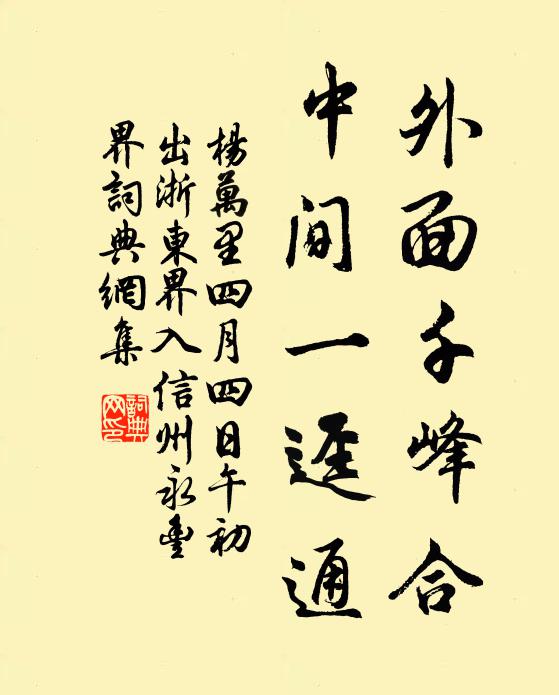 外面千峰合
中间一逕通
楊萬里四月四日午初
出浙東界入信州永豐
界詞典網集
詞典
网印